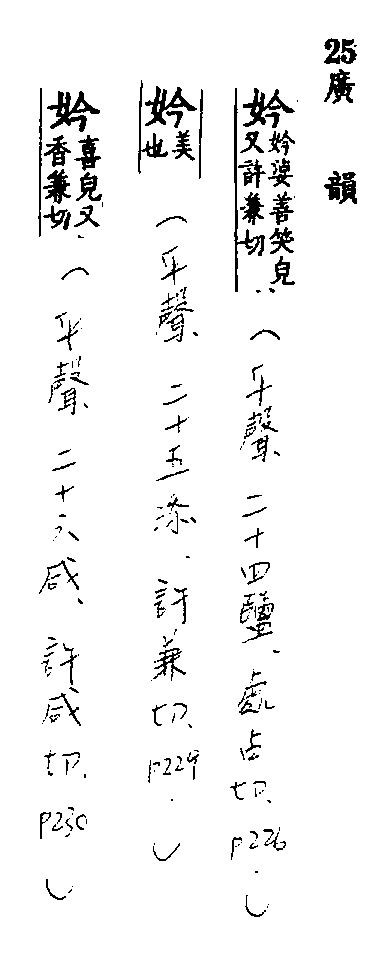 25廣韻
妗妗婆善笑皃又許兼切(平聲、二十四鹽、處占切、p226.)
妗美也(平聲、二十五添、許兼切、p229.)
妗喜皃又香兼切(平聲、二十六咸、許咸切、p230)